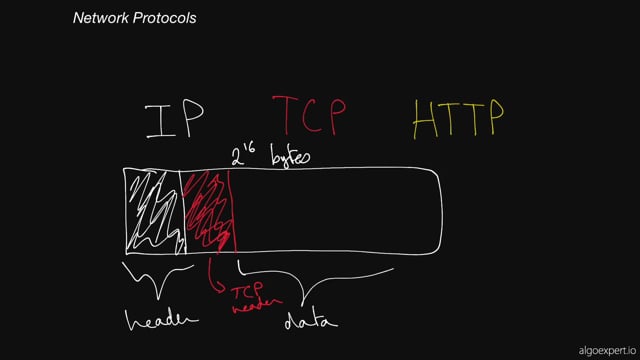 Network Protocols
IP TCP HTTP
2^16 bytes
header
TCP
header
data
algoexpert.io